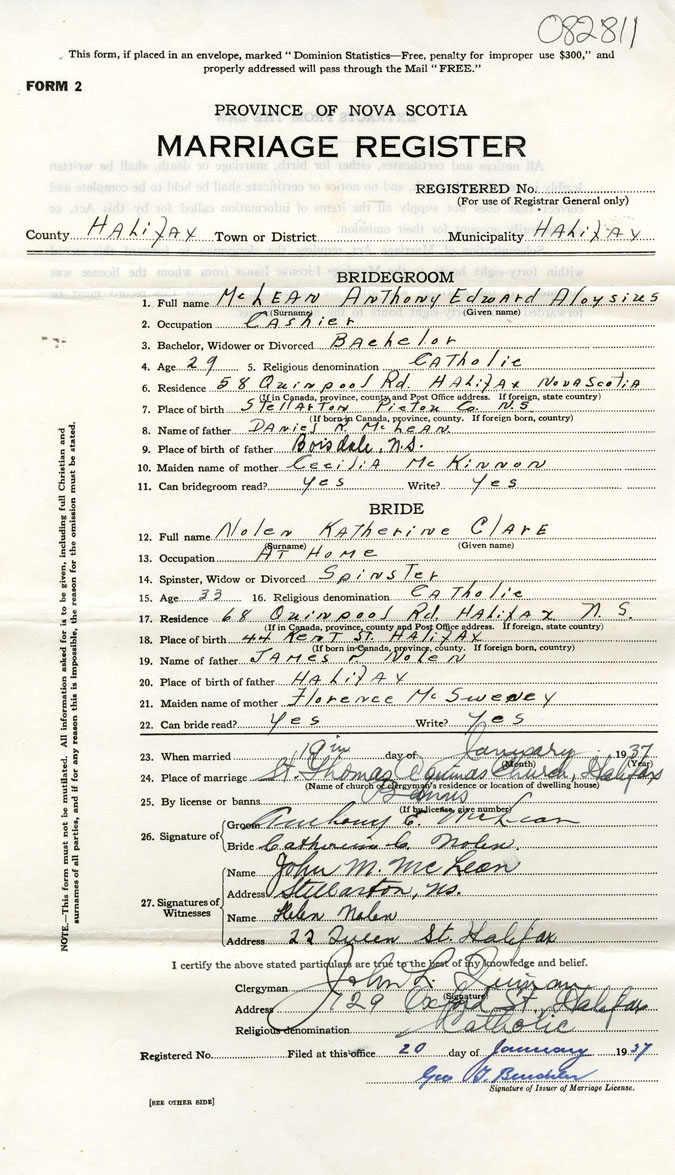 082811
This form, if placed in an envelope, marked "Dominion Statistics—Free, penalty for improper use $300," and
properly addressed will pass through the Mail "FREE."
FORM 2
PROVINCE OF NOVA SCOTIA
MARRIAGE REGISTER
REGISTERED No.
(For use of Registrar General only)
County HALifAX Town or District Municipality HALifAX
BRIDEGROOM
1. Full name McLEAN Anthony Edward Aloysius
(Surname) (Given name)
2. Occupation Cashier
3. Bachelor, Widower or Divorced BAchelor
4. Age 29 5. Religious denomination CATholic
6. Residence 58 Quinpool Rd. HALifAX NovA ScotiA
(If in Canada, province, county and Post Office address. If foreign, state country)
7. Place of birth STellArTon Pictou Co. N.S.
(If born in Canada, province, county. If foreign born, country)
8. Name of father DANiel R. McLEAN.
9. Place of birth of father Boisdale, N.S.
10. Maiden name of mother CeciliA McKinnon
11. Can bridegroom read? yes Write? yes
BRIDE
12. Full name Nolen KATherine ClArE
(Surname) (Given name)
13. Occupation AT Home
14. Spinster, Widow or Divorced SpinsTer
15. Age 33 16. Religious denomination CATholic
17. Residence 68 Quinpool Rd HALifAX N.S.
(If in Canada, province, county and Post Office Address. If foreign, state country)
18. Place of birth 44 KenT ST. HALifAX
(If born in Canada, province, county. If foreign born, country)
19. Name of father JAMes P. Nolen
20. Place of birth of father HALifAX
21. Maiden name of mother Florence McSweney
22. Can bride read? yes Write? yes
23. When married 19th day of January 1937
(Month) (Year)
24. Place of marriage St. Thomas Aquinas Church, Halifax
(Name of church or clergyman's residence or location of dwelling house)
25. By license or banns Banns
(If by license, give number)
26. Signature of
Groom Anthony E. McLean
Bride Catherine C. Nolen.
27. Signatures of Witnesses
Name John M. McLean
Address Stellarton, N.S.
Name Helen Nolen
Address 22 Queen St. Halifax
I certify the above stated particulars are true to the best of my knowledge and belief.
Clergyman John L. Quinan
(Signature)
Address 729 Oxford St, Halifax
Religious denomination Catholic
Registered No. Filed at this office 20 day of January 1937
Geo
Signature of Issuer of Marriage License.
[SEE OTHER SIDE]
NOTE.—This form must not be mutilated. All information asked for is to be given, including full Christian and
surnames of all parties, and if for any reason this is impossible, the reason for the omission must be stated.